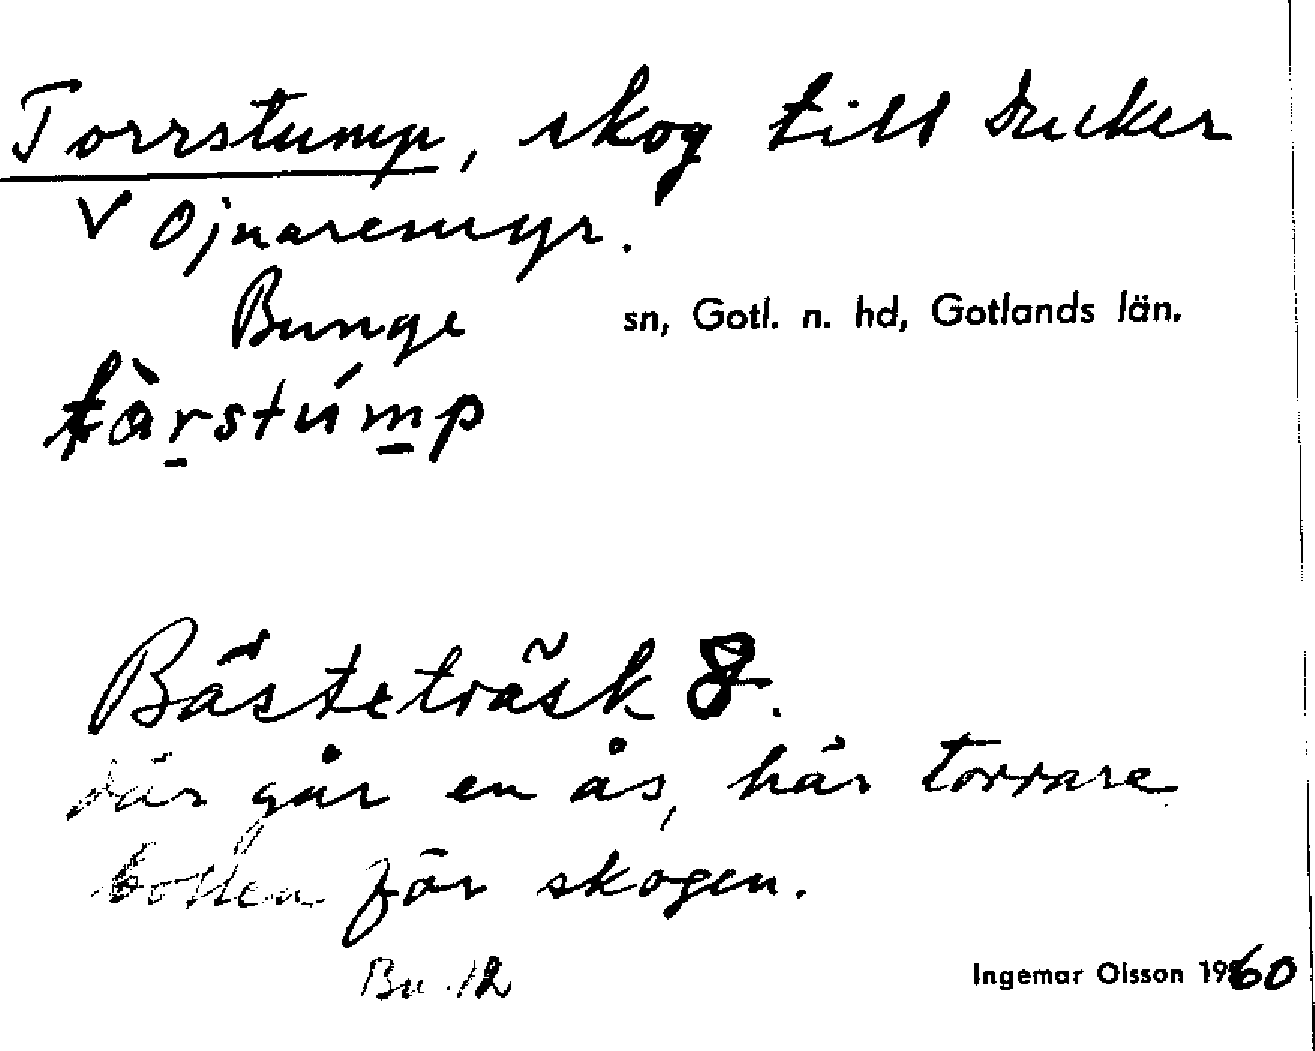 Torrstump, skog till Ducker
V Ojnaremyr.
Bunge sn, Gotl. n. hd, Gotlands län.
tàrstúmp
Bästeträsk 8.
där går en ås, här torrare
botten för skogen.
Bu 12
Ingemar Olsson 1960